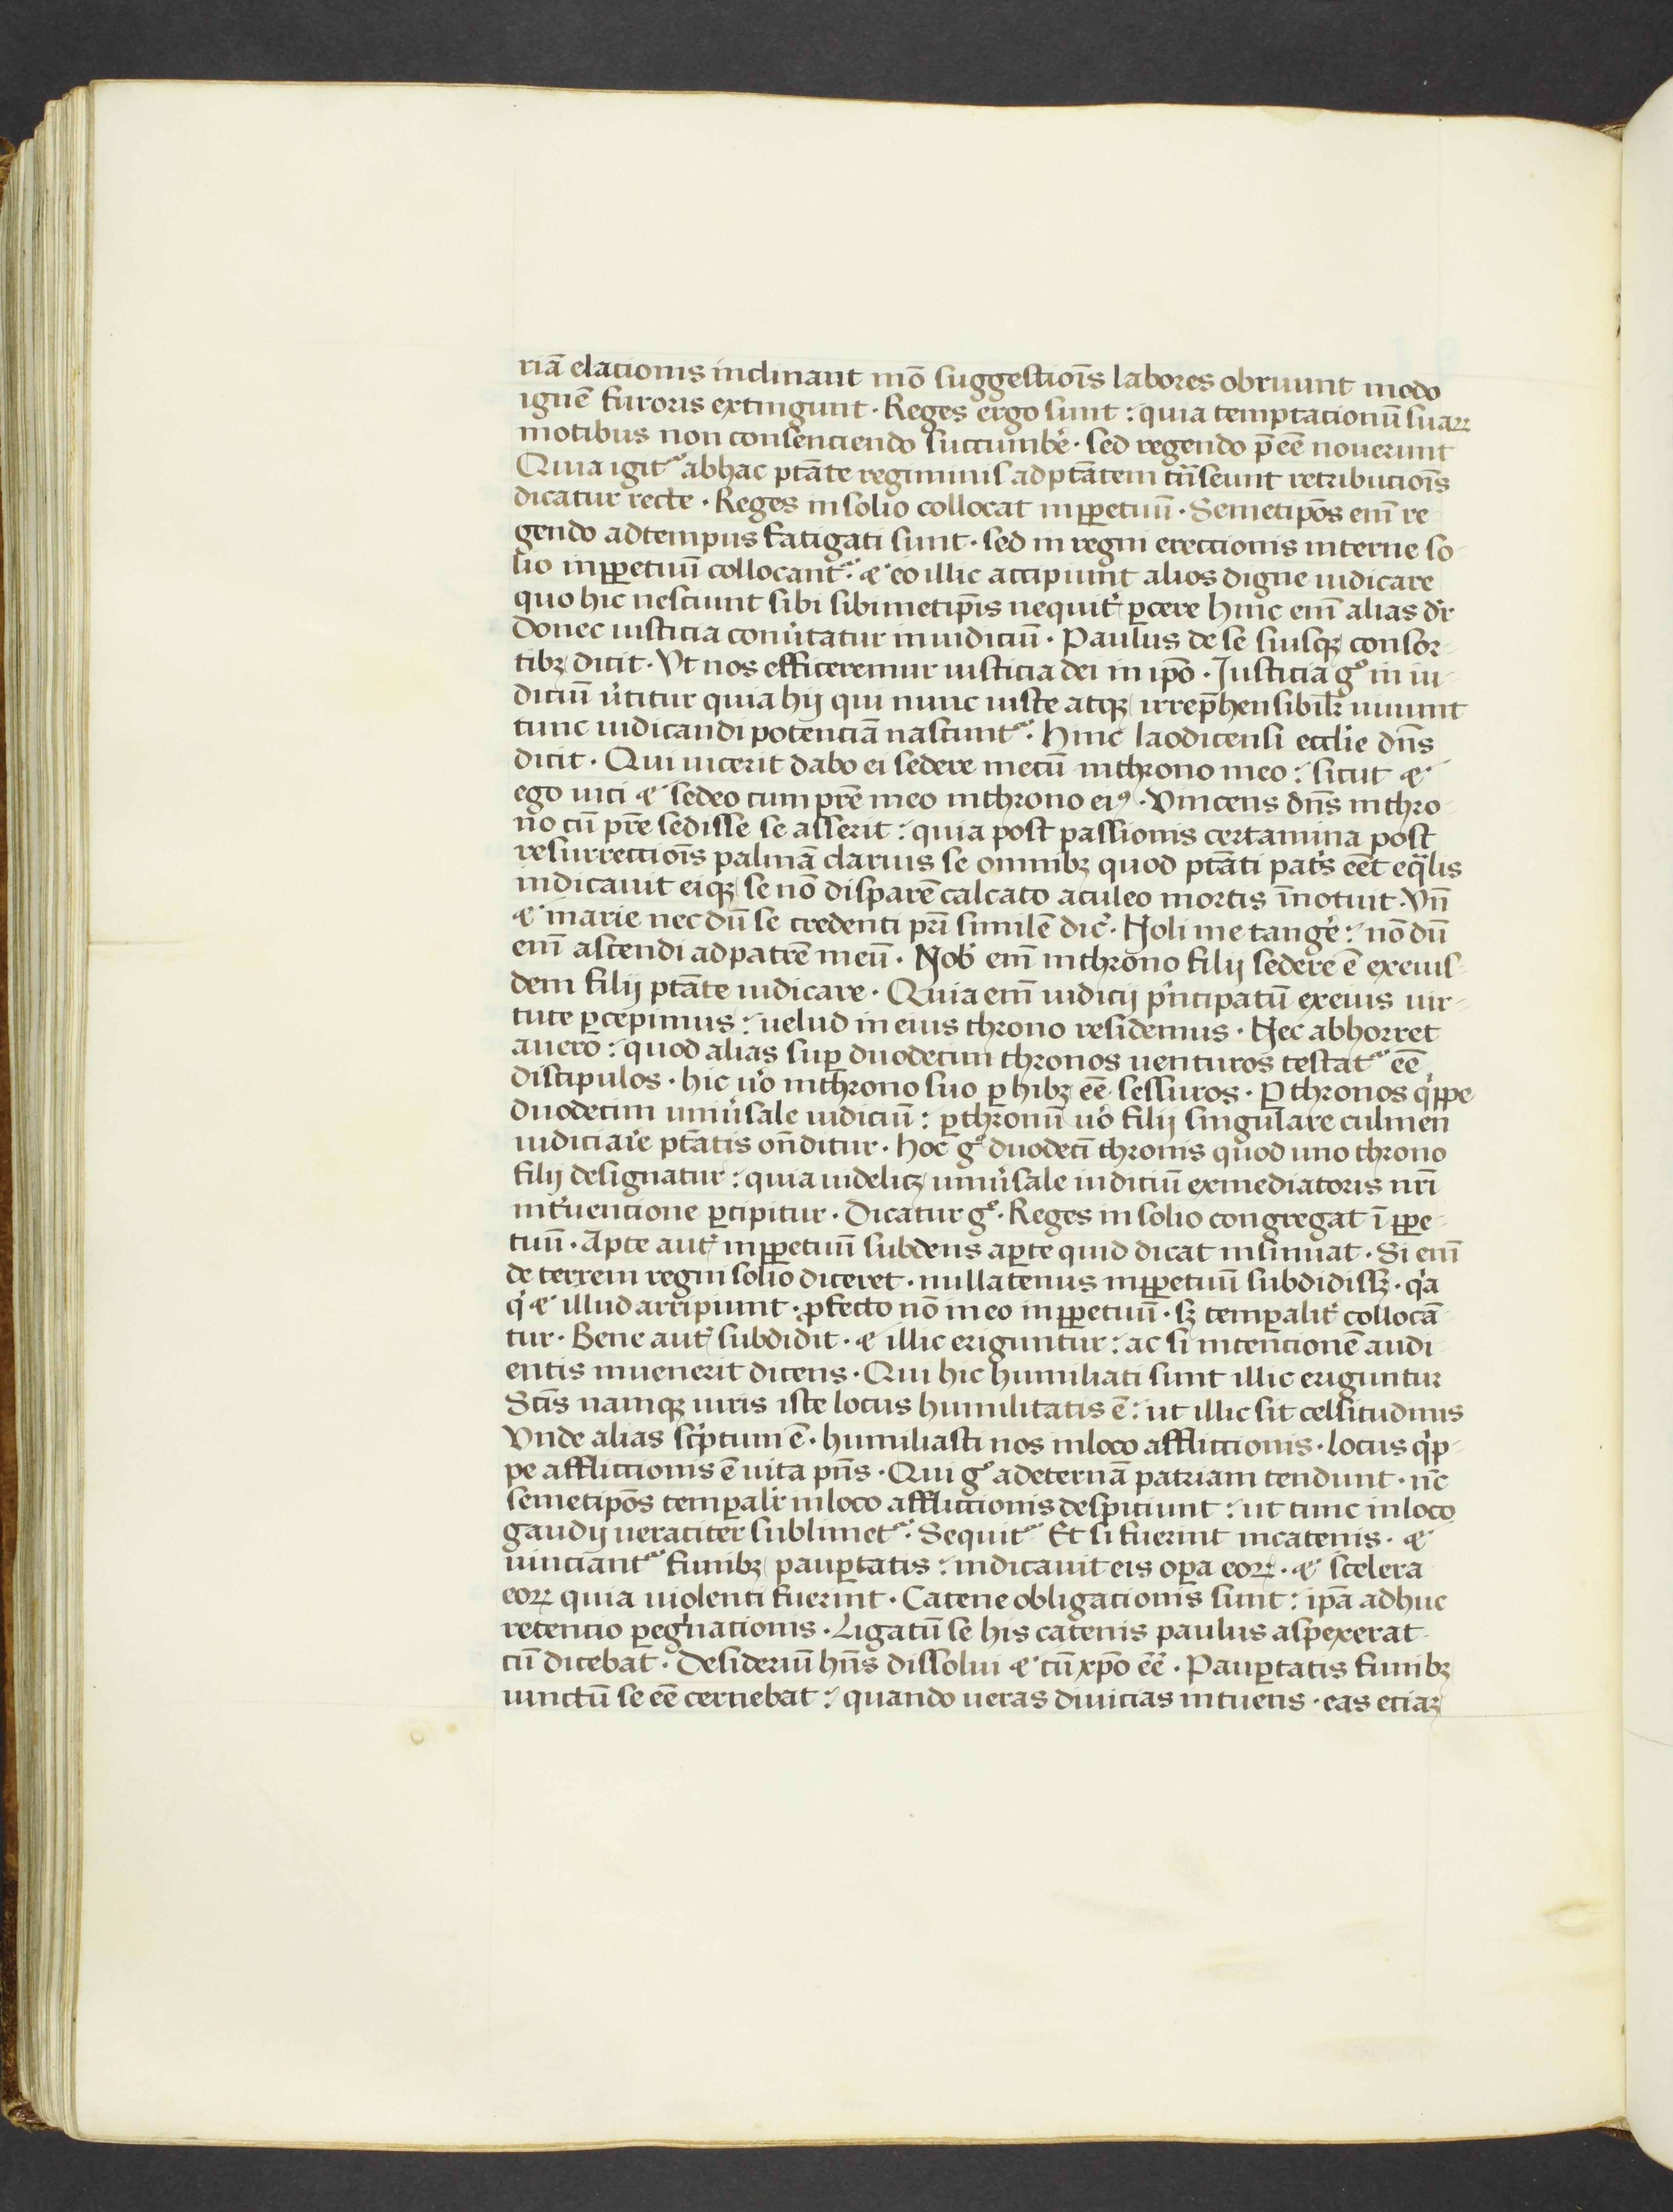 riā elacionis inclinant mō suggestiōis labores obruunt modo
ignē furoris extingunt · Reges ergo sunt : quia temptacionū suaꝝ
motibus non consenciendo succumbe᷑ · sed regendo p̄eē nouerunt
Quia igitᷣ abhac ptāte regiminis adptātem trāseunt retribuciōis
dicatur recte · Reges insolio collocat inꝑpetuū · Semetip̄os enī re-
gendo adtempus fatigati sunt · sed in regni ereccionis interne so-
lio inꝑpetuū collocantᷣ · ⁊ eo illic accipiunt alios digne iudicare
quo hic nesciunt sibi sibimetip̄is nequit᷑ ꝑcere hinc enī alias dr̄
donec iusticia conu᷑tatur iniudiciū · Paulus de se suisqꝫ consor-
tibꝫ dicit · Vt nos efficeremur iusticia dei in ip̄o · Iusticia gͦ in iu-
diciū u᷑titur quia hij qui nunc iuste atqꝫ irrep̄hensibilr̄ uiuunt
tunc iudicandi potenciā nascuntᷣ · hinc laodicensi ecclīe dn̄s
dicit · Qui uicerit dabo ei sedere mecū inthrono meo : sicut ⁊
ego uici ⁊ sedeo cum pr̄e meo inthrono eiꝰ · Vincens dn̄s inthro-
no cū pr̄e sedisse se asserit : quia post passionis certamina post
resurrecciōis palmā clarius se omnibꝫ quod ptāti patᷣs eēt eq̄lis
indicauit eiqꝫ se nō disparē calcato aculeo mortis īnotuit · Vn̄
⁊ marie nec dū se credenti pr̄i similē dic᷑ · Noli me tange᷑ : nō dū
enī ascendi adpatrē meū · Nob᷑ enī inthrono filij sedere ē exeius-
dem filij ptāte iudicare · Quia enī iudicij pͥncipatū exeius uir-
tute ꝑcepimus : uelud in eius throno residemus · Nec abhorret
auero : quod alias suꝑ duodecim thronos uenturos testatᷣ eē
discipulos · hic uͦo inthrono suo ꝑ hibꝫ eē sessuros · Ꝑ thronos qͥppe
duodecim uniu᷑sale iudiciū : ꝑthronū uͦo filij singulare culmen
iudiciarie ptātis on̄ditur · hoc gͦ duodecī thronis quod uno throno
filij designatur : quia uidelicꝫ uniu᷑sale iudiciū exmediatoris nr̄i
int᷑uencione ꝑcipitur · Dicatur gͦ · Reges in solio congregat ī ꝑpe-
tuū · Apte aut᷑ inꝑpetuū subdens aꝑte quid dicat insinuat · Si enī
de terreni regni solio diceret · nullatenus inꝑpetuū subdidissꝫ · qͥa
qͥ ⁊ illud arripiunt · ꝓfecto nō in eo inꝑpetuū · sꝫ tempalit᷑ collocā-
tur · Bene aut᷑ subdidit · ⁊ illic eriguntur : ac si intencionē audi-
entis inuenerit dicens · Qui hic humiliati sunt illic eriguntur
Scīs namqꝫ uiris iste locus humilitatis ē : ut illic sit celsitudinis
Vnde alias scͥptum ē · humiliasti nos inloco affliccionis · locus qͥp-
pe affliccionis ē uita pn̄s · Qui gͦ adeternā patriam tendunt · nc̄
semetip̄os tempalr̄ inloco affliccionis despiciunt : ut tunc inloco
gaudij ueraciter sublimetᷣ · Sequitᷣ Et si fuerint incatenis · ⁊
uinciantᷣ funibꝫ pauꝑtatis : indicauit eis oꝑa eoꝝ · ⁊ scelera
eoꝝ quia uiolenti fuerint · Catene obligacionis sunt : ip̄a adhuc
retencio ꝑegͥnationis · Ligatū se his catenis paulus aspexerat
cū dicebat · Desideriū hn̄s dissolui ⁊ cū xp̄o eē · Pauꝑtatis funibꝫ
uinctū se eē cernebat : quando ueras diuicias intuens · eas eciaꝫ